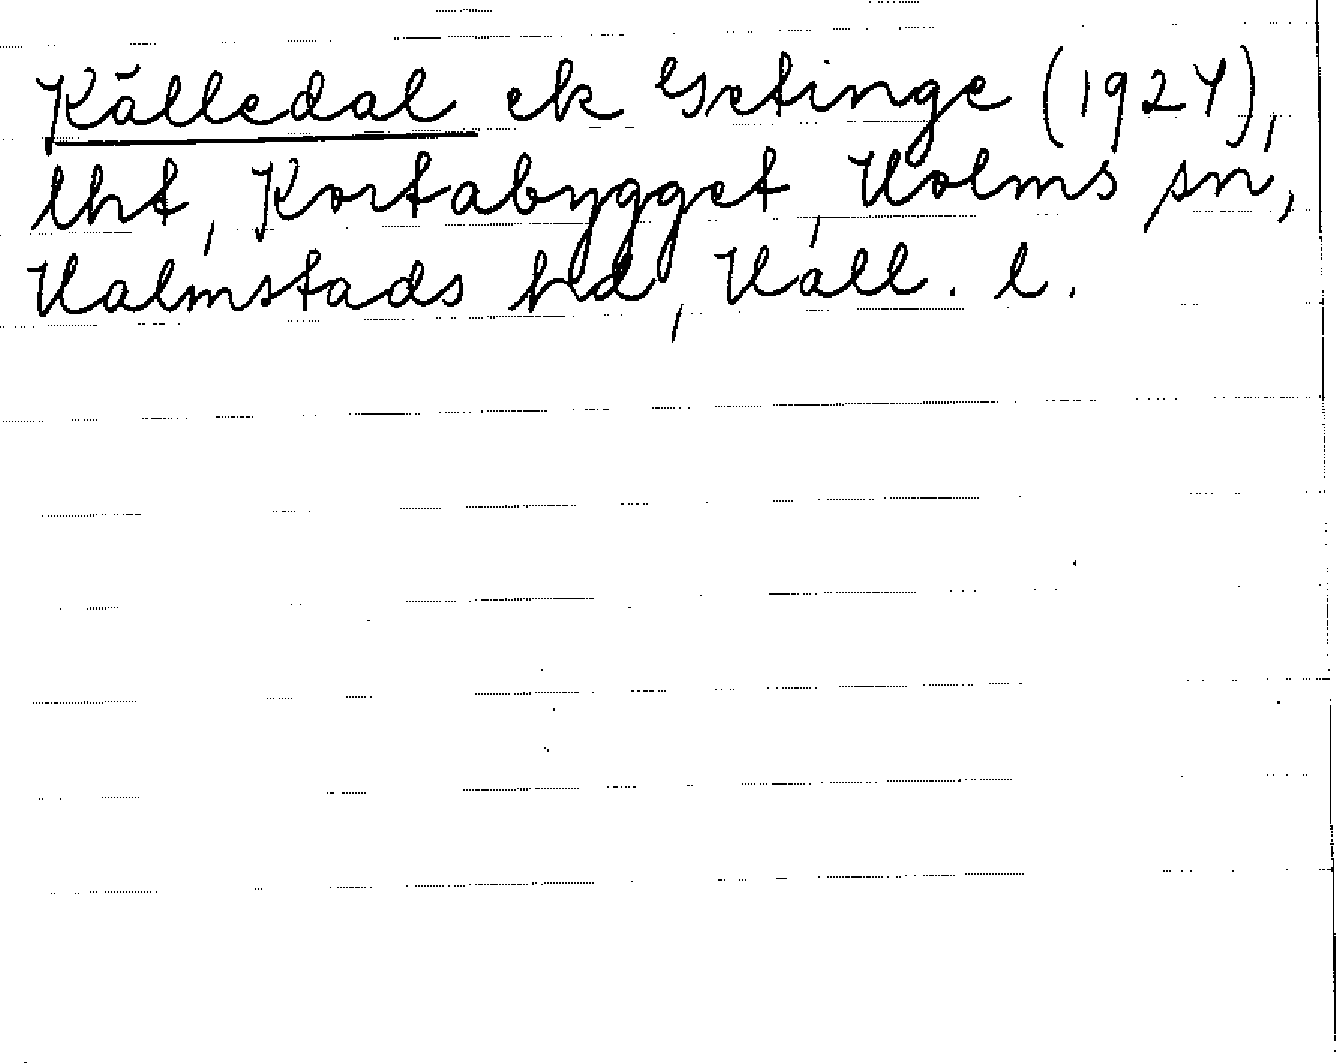 Källedal ek Getinge (1924),
lht, Kortabygget, Holms sn,
Halmstads hd, Hall. l.